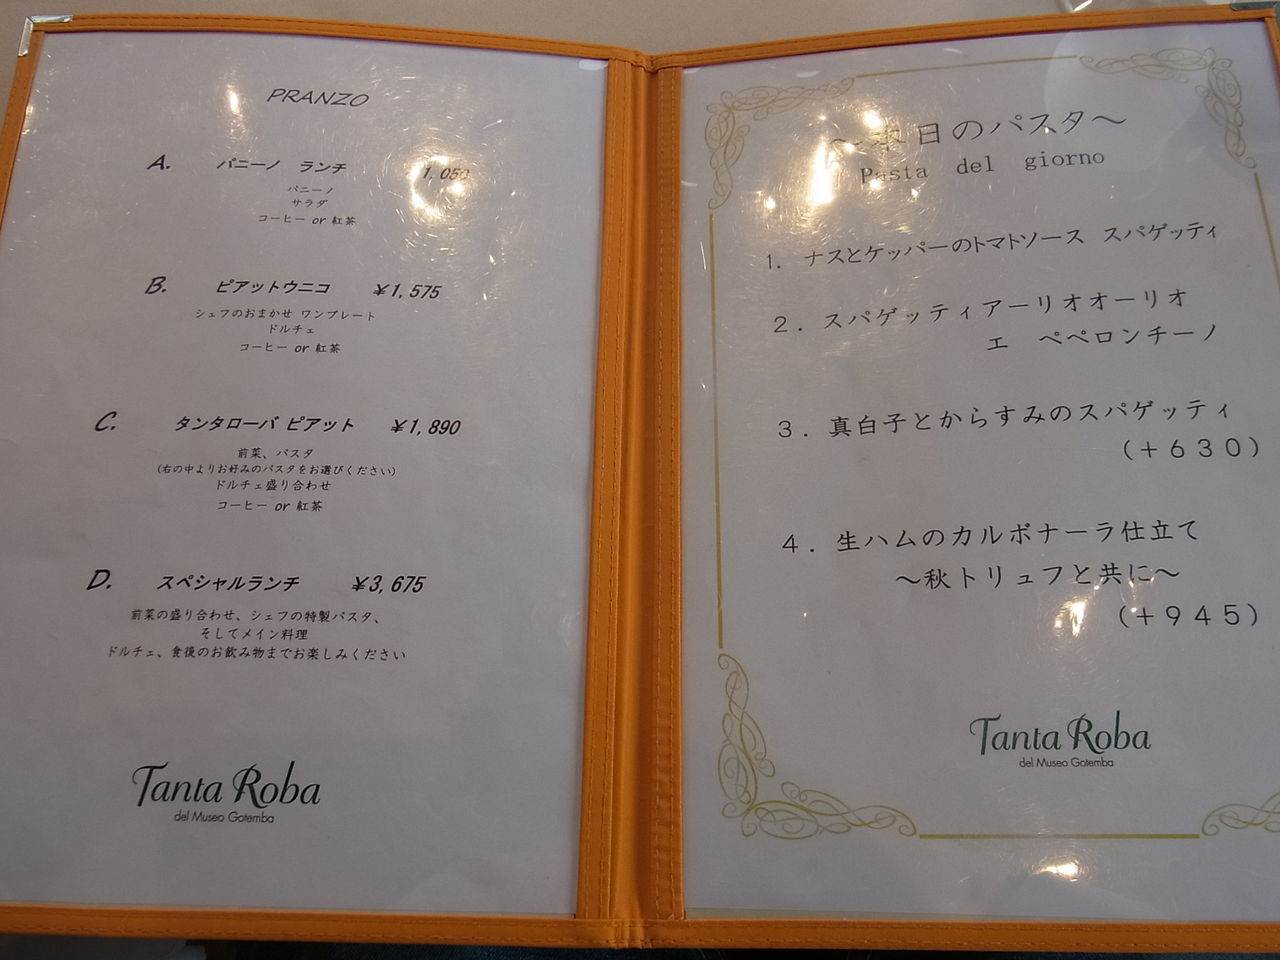 PRANZO
A. パニーノ ランチ 1,050
パニーノ
サラダ
コーヒー or 紅茶
B. ピアットウニコ ¥1,575
シェフのおまかせ ワンプレート
ドルチェ
コーヒー or 紅茶
C. タンタローバ ピアット ¥1,890
前菜、パスタ
(右の中よりお好みのパスタをお選びください)
ドルチェ盛り合わせ
コーヒー or 紅茶
D. スペシャルランチ ¥3,675
前菜の盛り合わせ、シェフの特製パスタ、
そしてメイン料理
ドルチェ、食後のお飲み物までお楽しみください
Tanta Roba
del Museo Gotemba
～本日のパスタ～
Pasta del giorno
1. ナスとケッパーのトマトソース スパゲッティ
2. スパゲッティアーリオオーリオ
エ ペペロンチーノ
3. 真白子とからすみのスパゲッティ
(+630)
4. 生ハムのカルボナーラ仕立て
～秋トリュフと共に～
(+945)
Tanta Roba
del Museo Gotemba